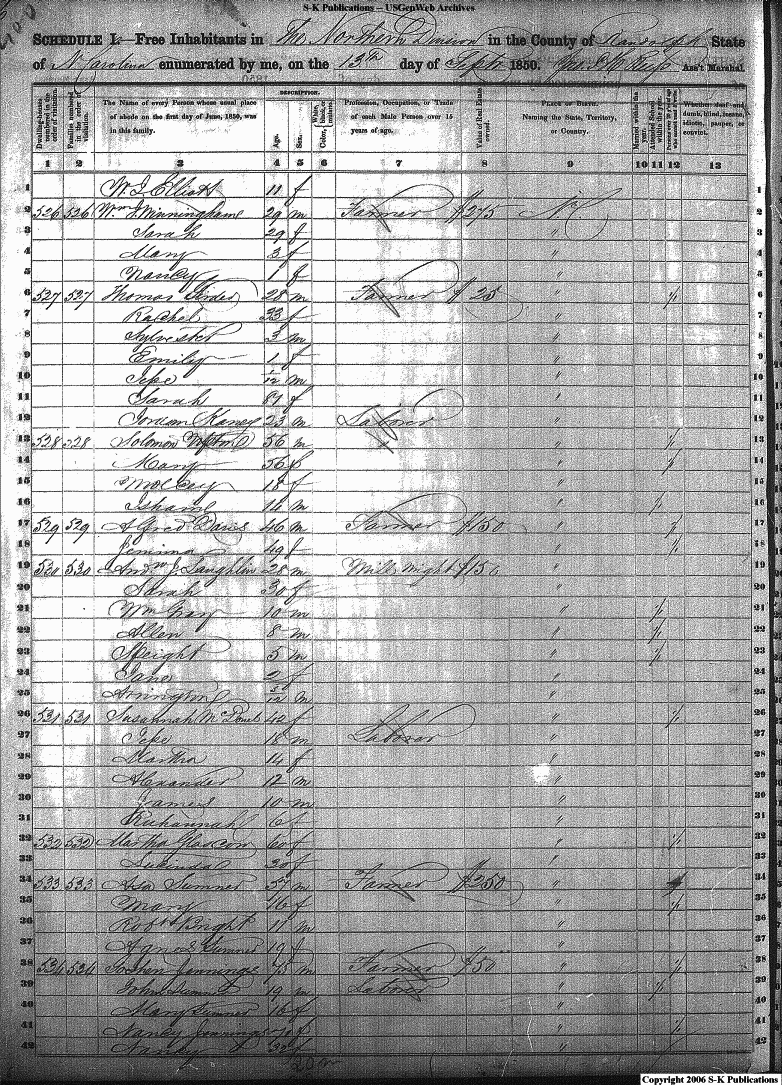 S-K Publications -- USGenWeb Archives
SCHEDULE I.—Free Inhabitants in The Northern Division in the County of Randolph State
of N. Carolina enumerated by me, on the 13th day of Sept 1850. Ass't Marshal.
DESCRIPTION.
Dwelling-houses numbered in the order of visitation.
Families numbered in the order of visitation.
The Name of every Person whose usual place of abode on the first day of June, 1850, was in this family.
Age.
Sex.
Color, White, black, or mulatto.
Profession, Occupation, or Trade of each Male Person over 15 years of age.
Value of Real Estate owned.
PLACE OF BIRTH. Naming the State, Territory, or Country.
Married within the year.
Attended School within the year.
Persons over 20 y'rs of age who cannot read & write.
Whether deaf and dumb, blind, insane, idiotic, pauper, or convict.
1 2 3 4 5 6 7 8 9 10 11 12 13
1 Elliott 11 f 1
2 526 526 Wm 29 m Farmer $275 NC 2
3 Sarah 29 f " 3
4 Mary 3 f " 4
5 Nancy 1 f " 5
6 527 527 Thomas 28 m Farmer $25 " / 6
7 Rachel 33 f " 7
8 Sylvester 3 m " 8
9 Emily 1 f " 9
10 m " 10
11 Sarah 81 f " 11
12 Laborer " 12
13 528 528 Solomon 56 m " / 13
14 Mary 56 f " / 14
15 18 f " 15
16 Isham 14 m " / 16
17 529 529 Alfred Davis 46 m Farmer $150 " / 17
18 Jemima 49 f " / 18
19 530 530 Andw J. Laughlin 28 m " 19
20 Sarah 30 f " 20
21 Wm Gray 10 m " / 21
22 Allen 8 m " / 22
23 Speight 5 m " / 23
24 Jane 2 f " 24
25 Arrington m " 25
26 531 531 Susannah 42 f " / 26
27 18 m Laborer " 27
28 Martha 14 f " 28
29 Alexander 12 m " 29
30 James 10 m " 30
31 Ruhannah 6 f " 31
32 532 532 Martha Glasscow 60 f " / 32
33 Lucinda 30 f " 33
34 533 533 Asa Sumner 57 m Farmer $250 " 34
35 Mary 16 f " / 35
36 Robt Bright 11 m " 36
37 Agnes Sumner 19 f " 37
38 534 534 Jennings 75 m Farmer $50 " / 38
39 John Sumner 19 m Laborer " / 39
40 Mary Sumner 16 f " 40
41 Nancy Jennings f " / 41
42 Nancy f " 42
20 m
Copyright 2006 S-K Publications